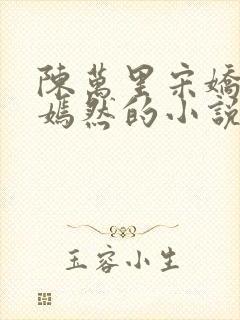 陳萬里宋嬌
嫣然的小說
玉容小生